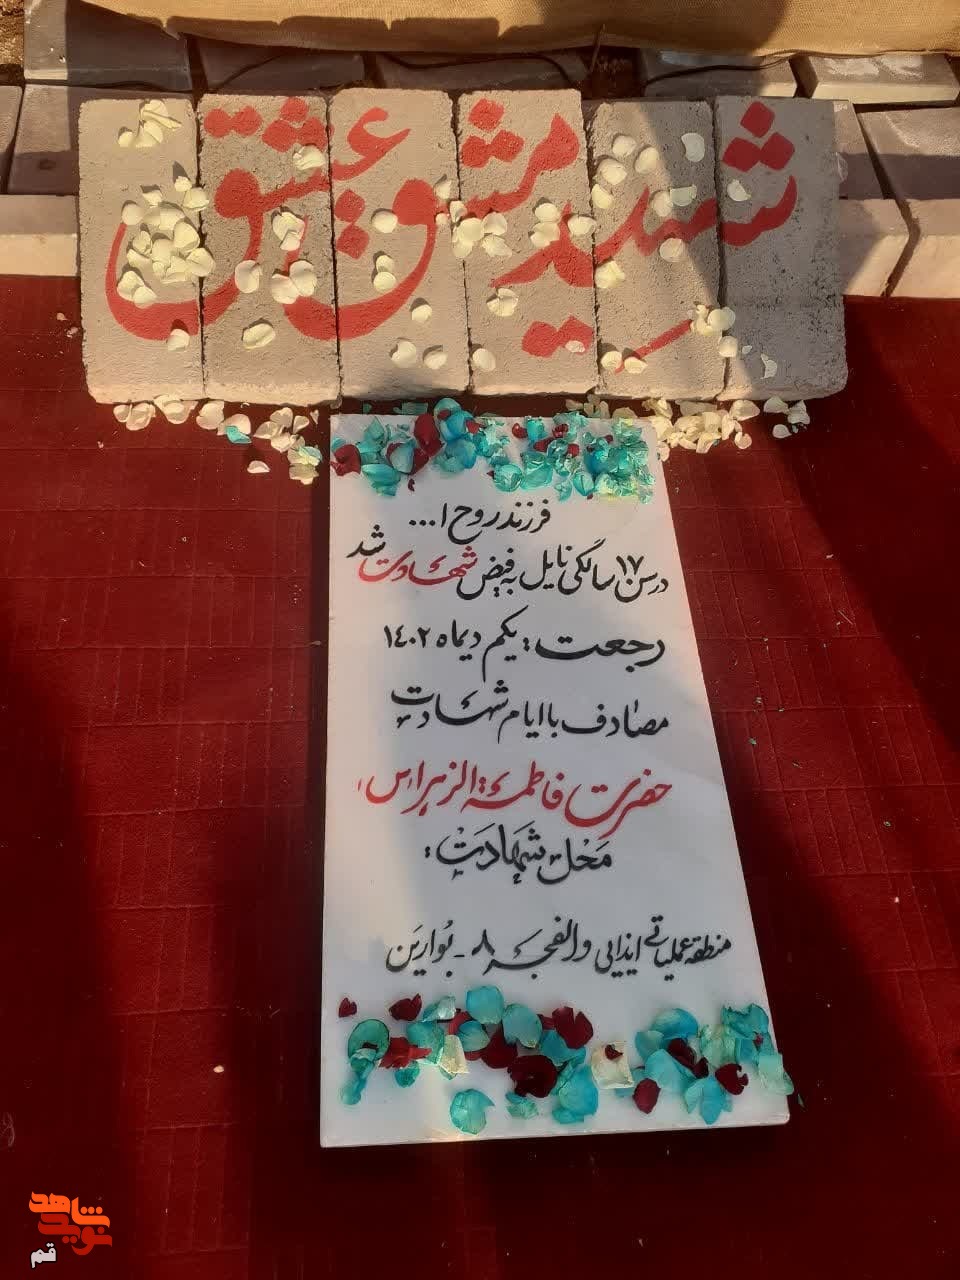 شهید مشق عشق
فرزند روح ا...
در سن ۱۷ سالگی نایل به فیض شهادت شد
رجعت: یکم دیماه ۱۴۰۲
مصادف با ایام شهادت
حضرت فاطمة الزهرا(س)
مَحَل شَهادَت:
منطقه عملیاتی ایذایی والفجر ۸ - بُوارین
نوید شاهد
قم